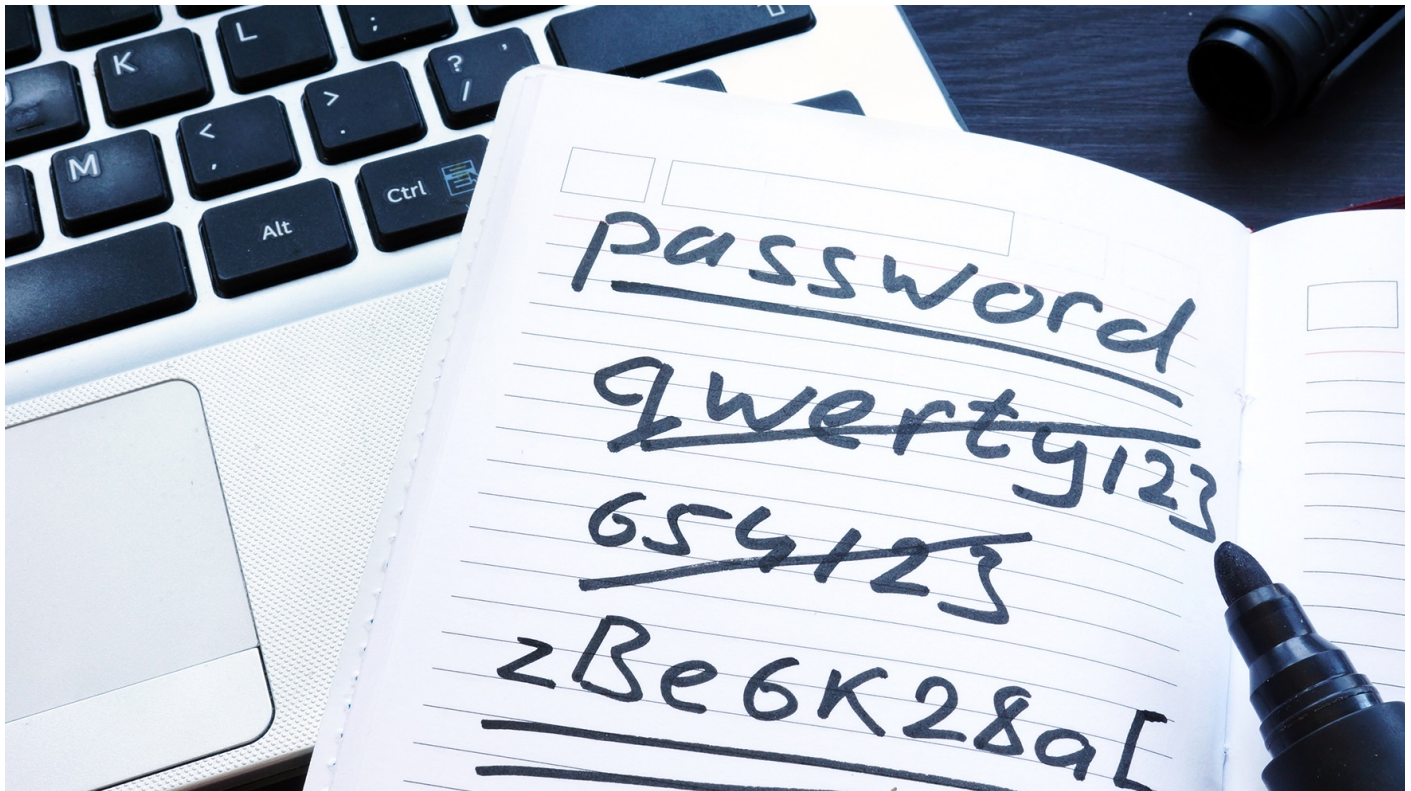 L ;
K > ? '
/
M < .
,
Alt Ctrl
password
qwerty123
654123
zBe6K28a[